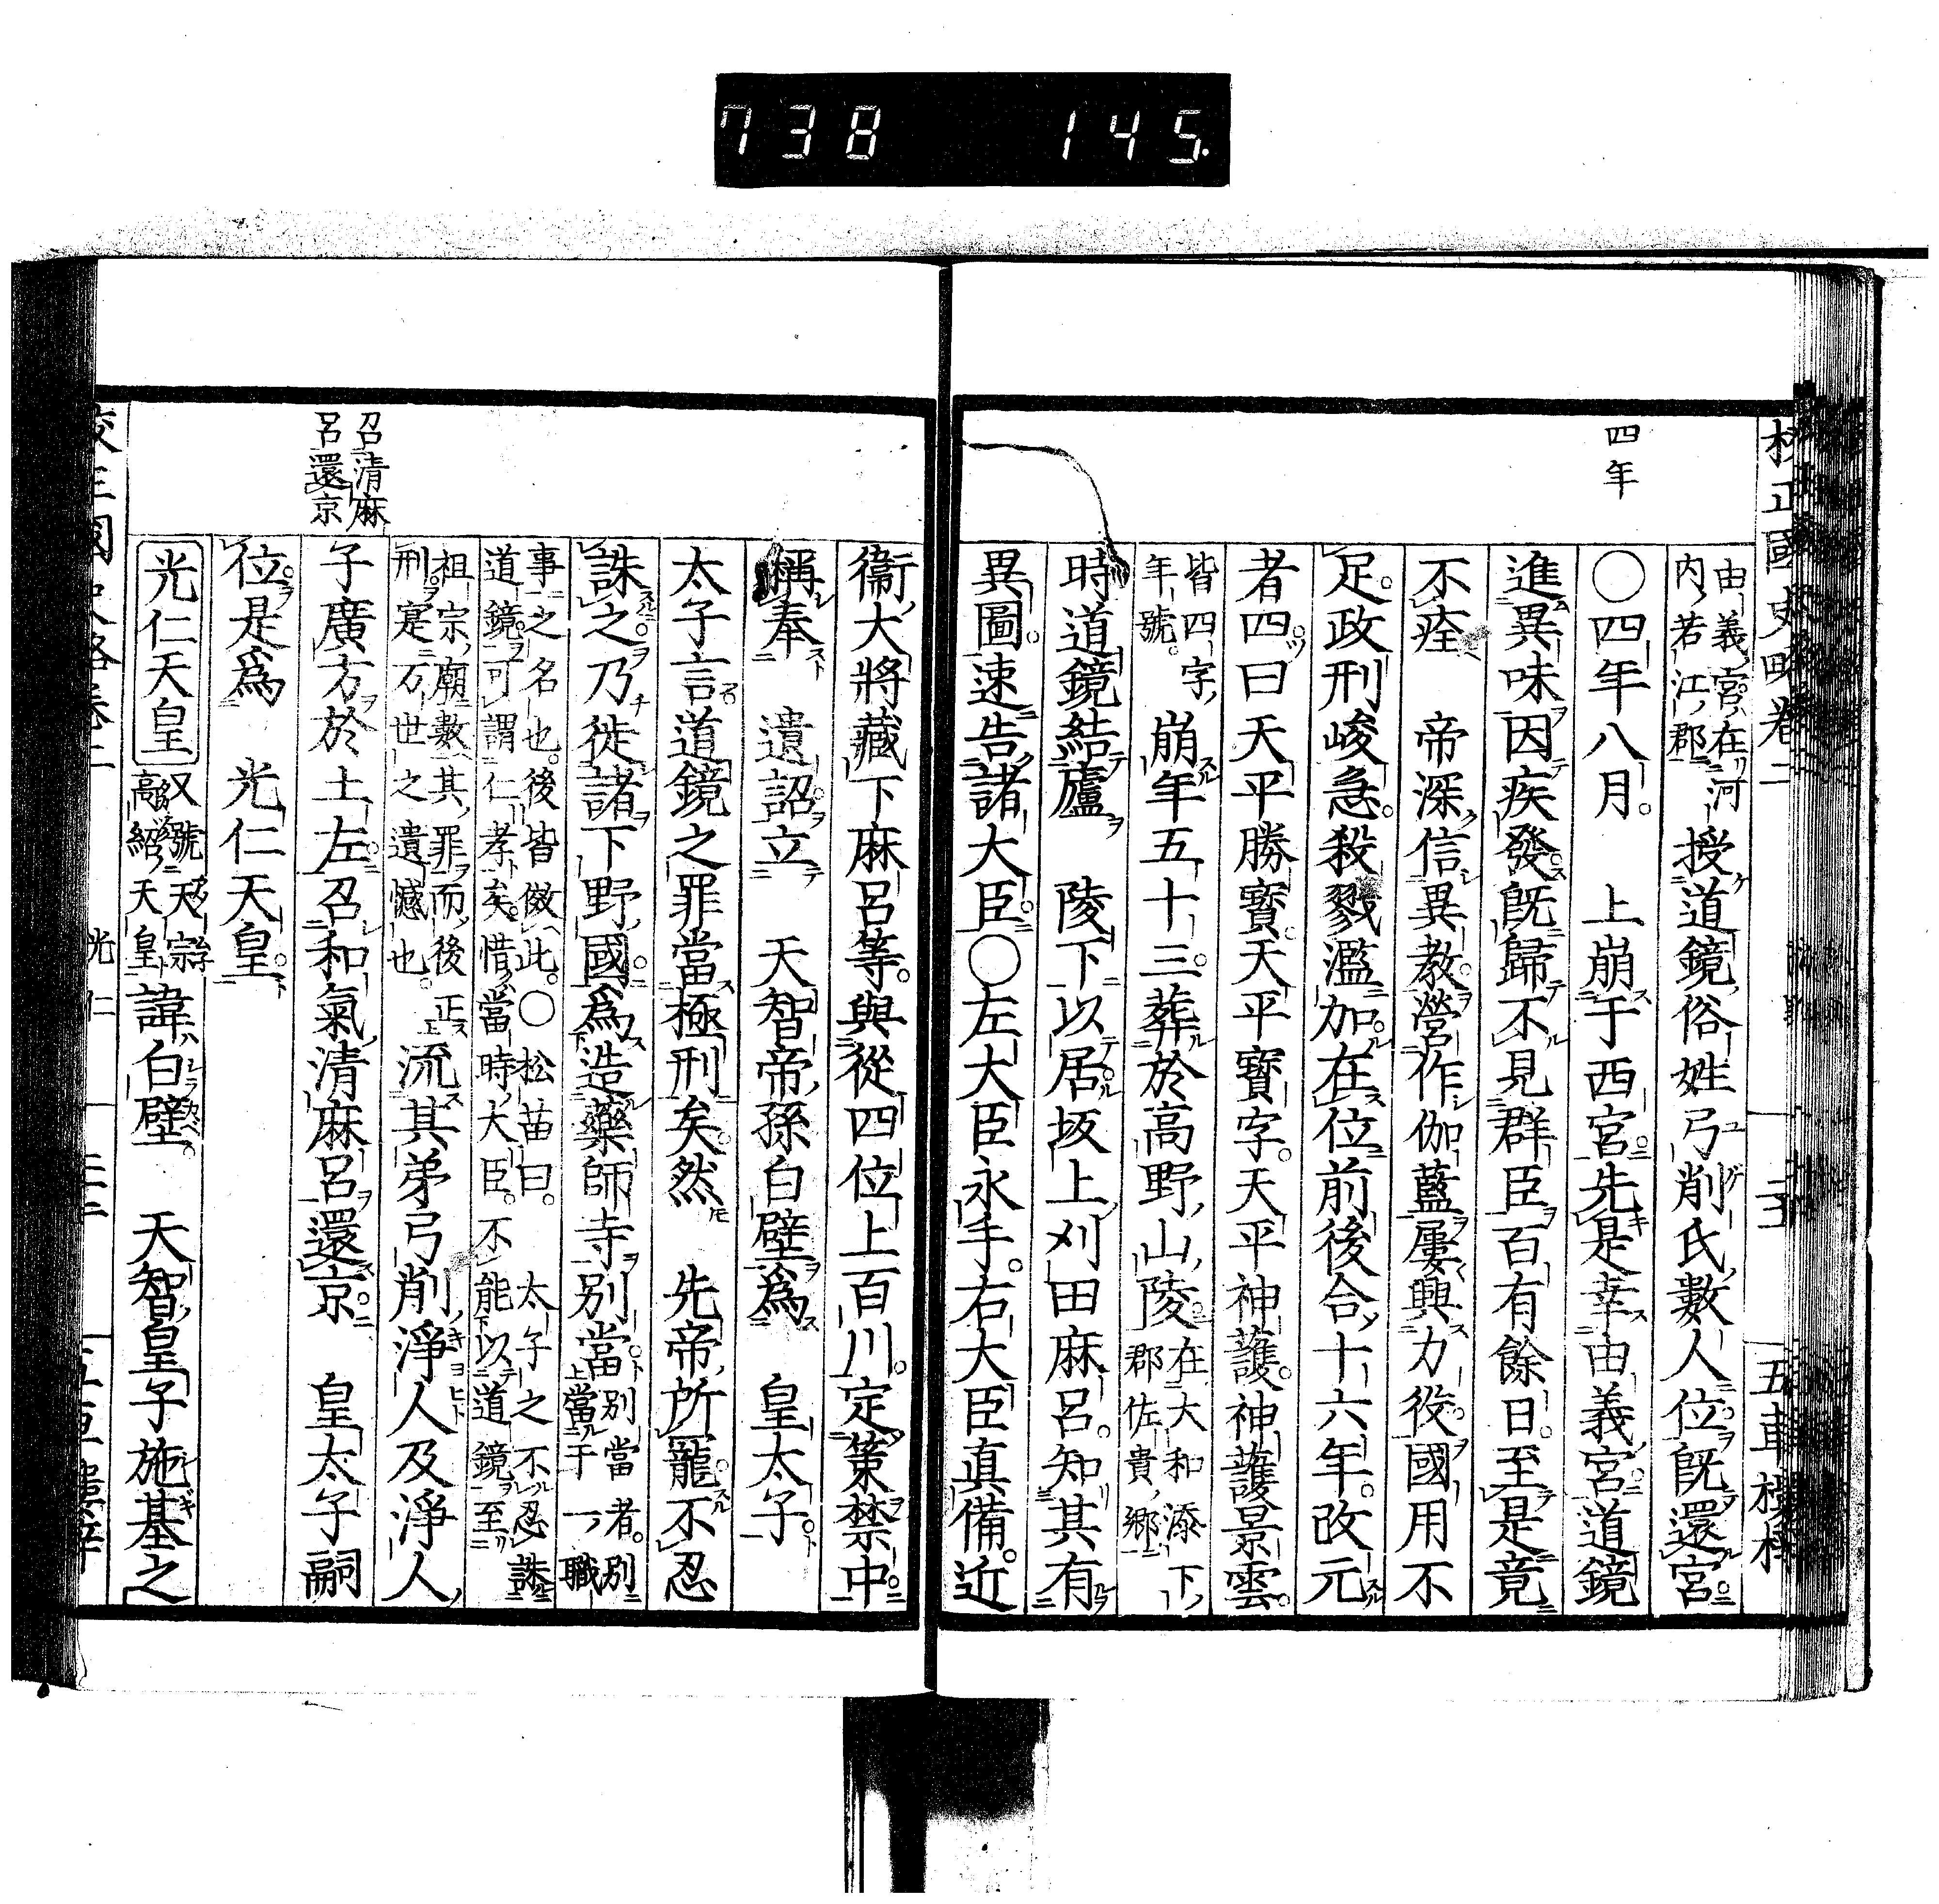 738 145.
四年
由義宮在河
内若江郡
授道鏡俗姓弓削氏數人位既還宮
〇四年八月 上崩于西宮先是幸由義宮道鏡
進異味因疾發既歸不見群臣百有餘日至是竟
不痊 帝深信異教營作伽藍屢興力役國用不
足政刑峻急殺戮濫加在位前後合十六年改元
者四曰天平勝寳天平寳字天平神護神護景雲
皆四字
年號
崩年五十三葬於高野山陵
在大和添下
郡佐貴郷
時道鏡結廬 陵下以居坂上刈田麻呂知其有
異圖速告諸大臣〇左大臣永手右大臣真備近
衞大將藏下麻呂等與從四位上百川定策禁中
稱奉 遺詔立 天智帝孫白壁爲 皇太子
太子言道鏡之罪當極刑矣然 先帝所寵不忍
誅之乃徙諸下野國爲造藥師寺別當
別當者別
當于一職
事之名也後皆倣此〇松苗曰 太子之不忍誅
道鏡可謂仁孝矣惜當時大臣不能以道鏡至
祖宗廟數其罪而後正
刑寔万世之遺憾也
流其弟弓削淨人及淨人
召清麻
呂還京
子廣方於土左召和氣清麻呂還京 皇太子嗣
位是爲 光仁天皇
光仁天皇
又號天宗
高紹天皇
諱白壁 天智皇子施基之